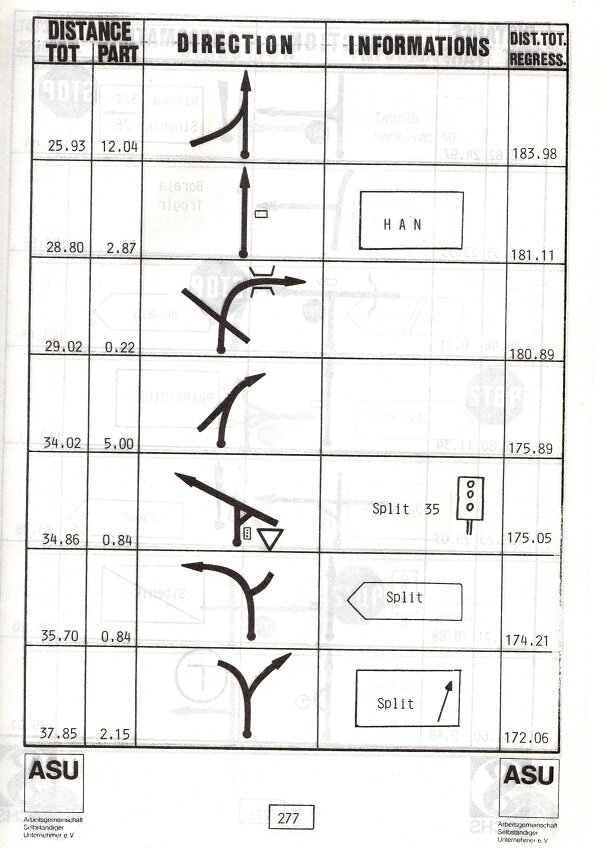 DISTANCE DIRECTION INFORMATIONS DIST.TOT.
TOT PART REGRESS.
25.93 12.04 183.98
HAN
28.80 2.87 181.11
29.02 0.22 180.89
34.02 5.00 175.89
Split 35
34.86 0.84 175.05
Split
35.70 0.84 174.21
Split
37.85 2.15 172.06
ASU ASU
Arbeitsgemeinschaft Arbeitsgemeinschaft
Selbständiger Selbständiger
Unternehmer e.V. Unternehmer e.V.
277